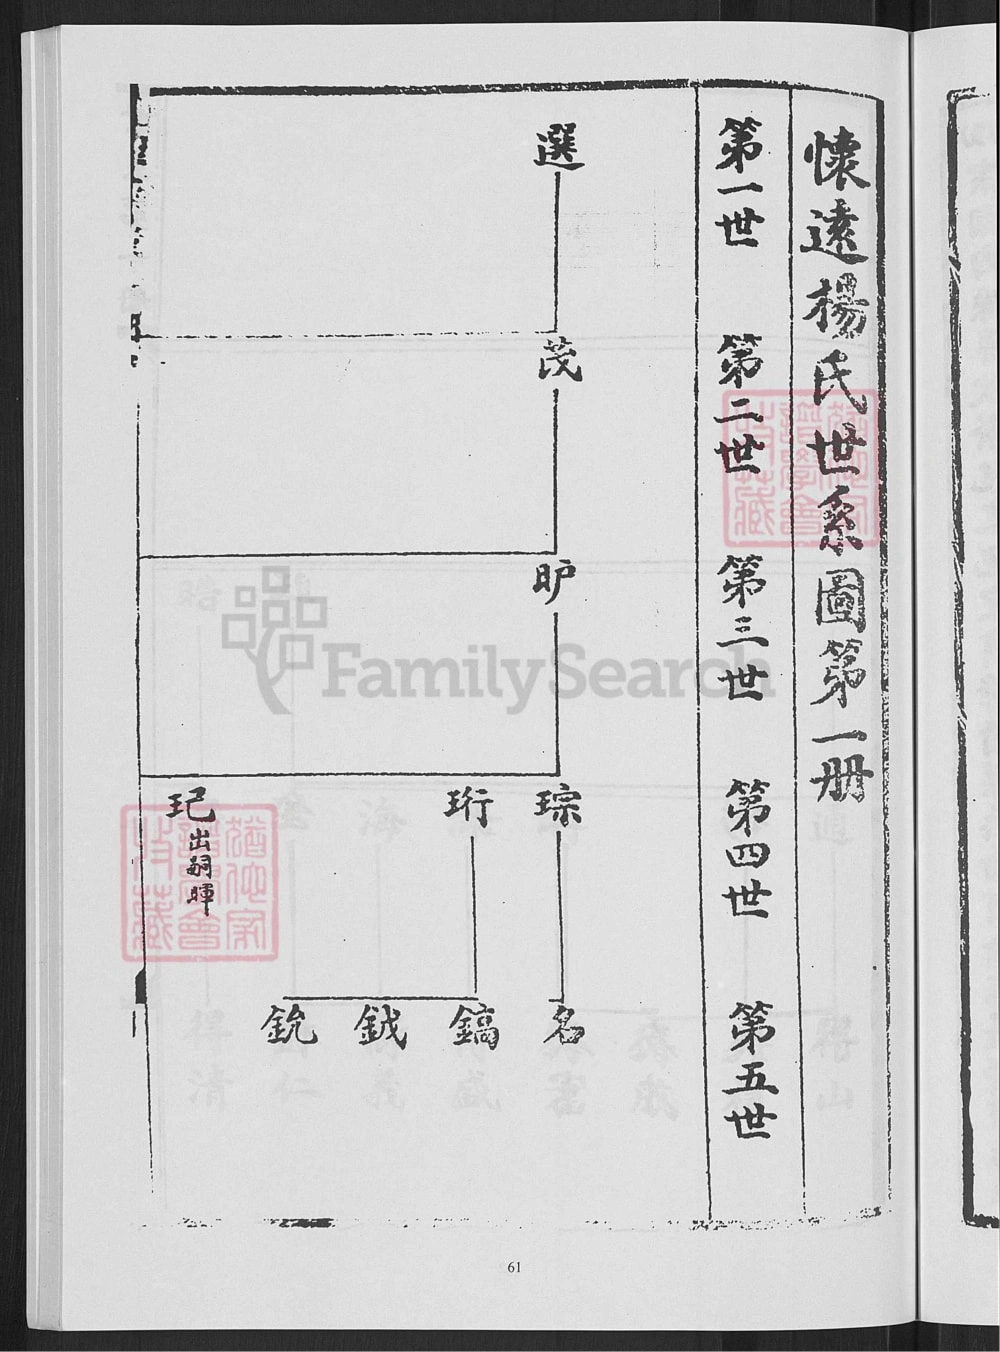 懷遠楊氏世系圖第一册
第一世
第二世
第三世
第四世
第五世
選
茂
昈
琮
珩
玘出嗣暉
名
鎬
鉞
銃
FamilySearch
61